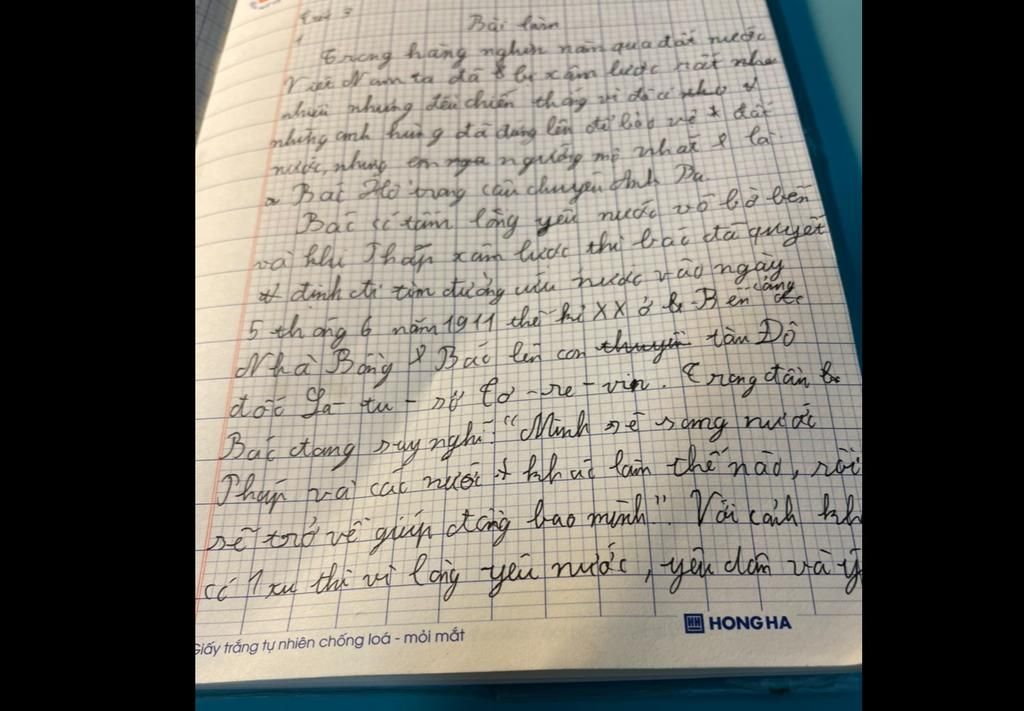 Bài làm
Trong hàng nghìn năm qua đất nước
Việt Nam ta đã bị xâm lược rất nhe
nhiều nhưng đều chiến thắng vì đã có
những anh hùng đã đứng lên để bảo vệ đất
nước, nhưng em ngưỡng mộ nhất là
Bác Hồ trong câu chuyện Anh Ba.
Bác có tấm lòng yêu nước vô bờ bến
và khi Pháp xâm lược thì bác đã quyết
định đi tìm đường cứu nước vào ngày
5 tháng 6 năm 1911 thế kỉ XX ở Bến cảng
Nhà Rồng Bác lên con thuyền tàu Đô
đốc La-tu-sơ Tơ-re-vin. Trong đầu
Bác đang suy nghĩ: "Mình sẽ sang nước
Pháp và các nước khác làm thế nào, rồi
sẽ trở về giúp đồng bao mình". Với cảnh kh
có 1 xu thì vì lòng yêu nước, yêu dân và ý
HH HONG HA
Giấy trắng tự nhiên chống loá - mỏi mắt